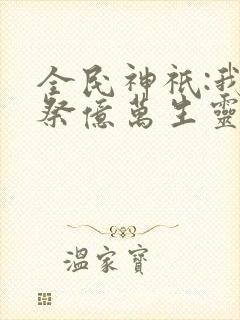 全民神祇:我
祭億萬生靈
溫家寶